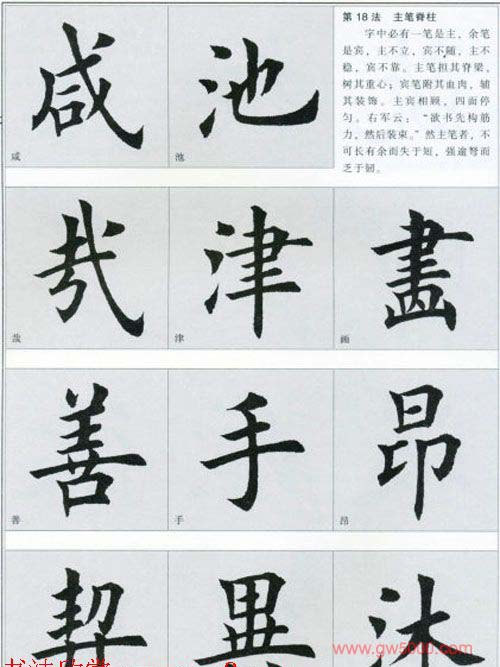 第18法 主笔脊柱
字中必有一笔是主，余笔
是宾，主不立，宾不随，主不
稳，宾不靠。主笔担其脊梁，
树其重心；宾笔附其血肉，辅
其装饰。主宾相顾，四面停
匀。右军云：“欲书先构筋
力，然后装束。”然主笔者，不
可长有余而失于短，强遒弩而
乏于韧。
咸 池
咸 池
哉 津 畫
哉 津 画
善 手 昂
善 手 昂
契 異 汰
www.gw5000.com